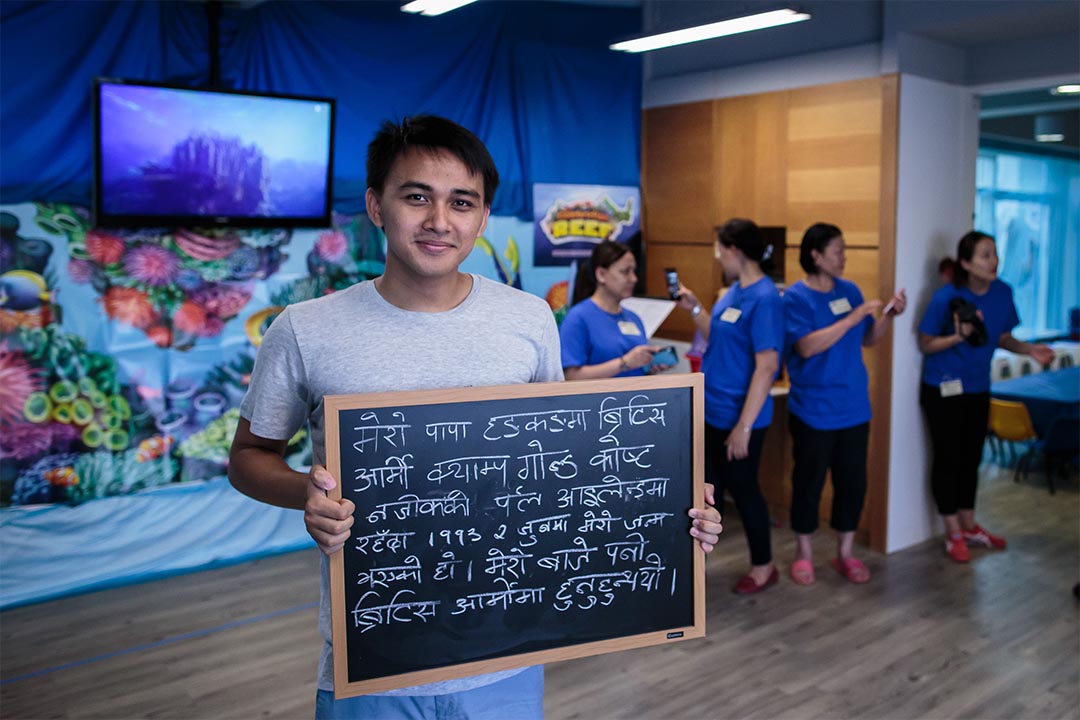 REEF
मेरो पापा हङकङमा ब्रिटिस
आर्मी क्याम्प गोल्ड कोष्ट
नजीककी पर्ल आइलेन्डमा
रहँदा १९९३ २ जुनमा मेरो जन्म
भएको हो । मेरो बाजे पनी
ब्रिटिस आर्मीमा हुनुहुन्थ्यो ।